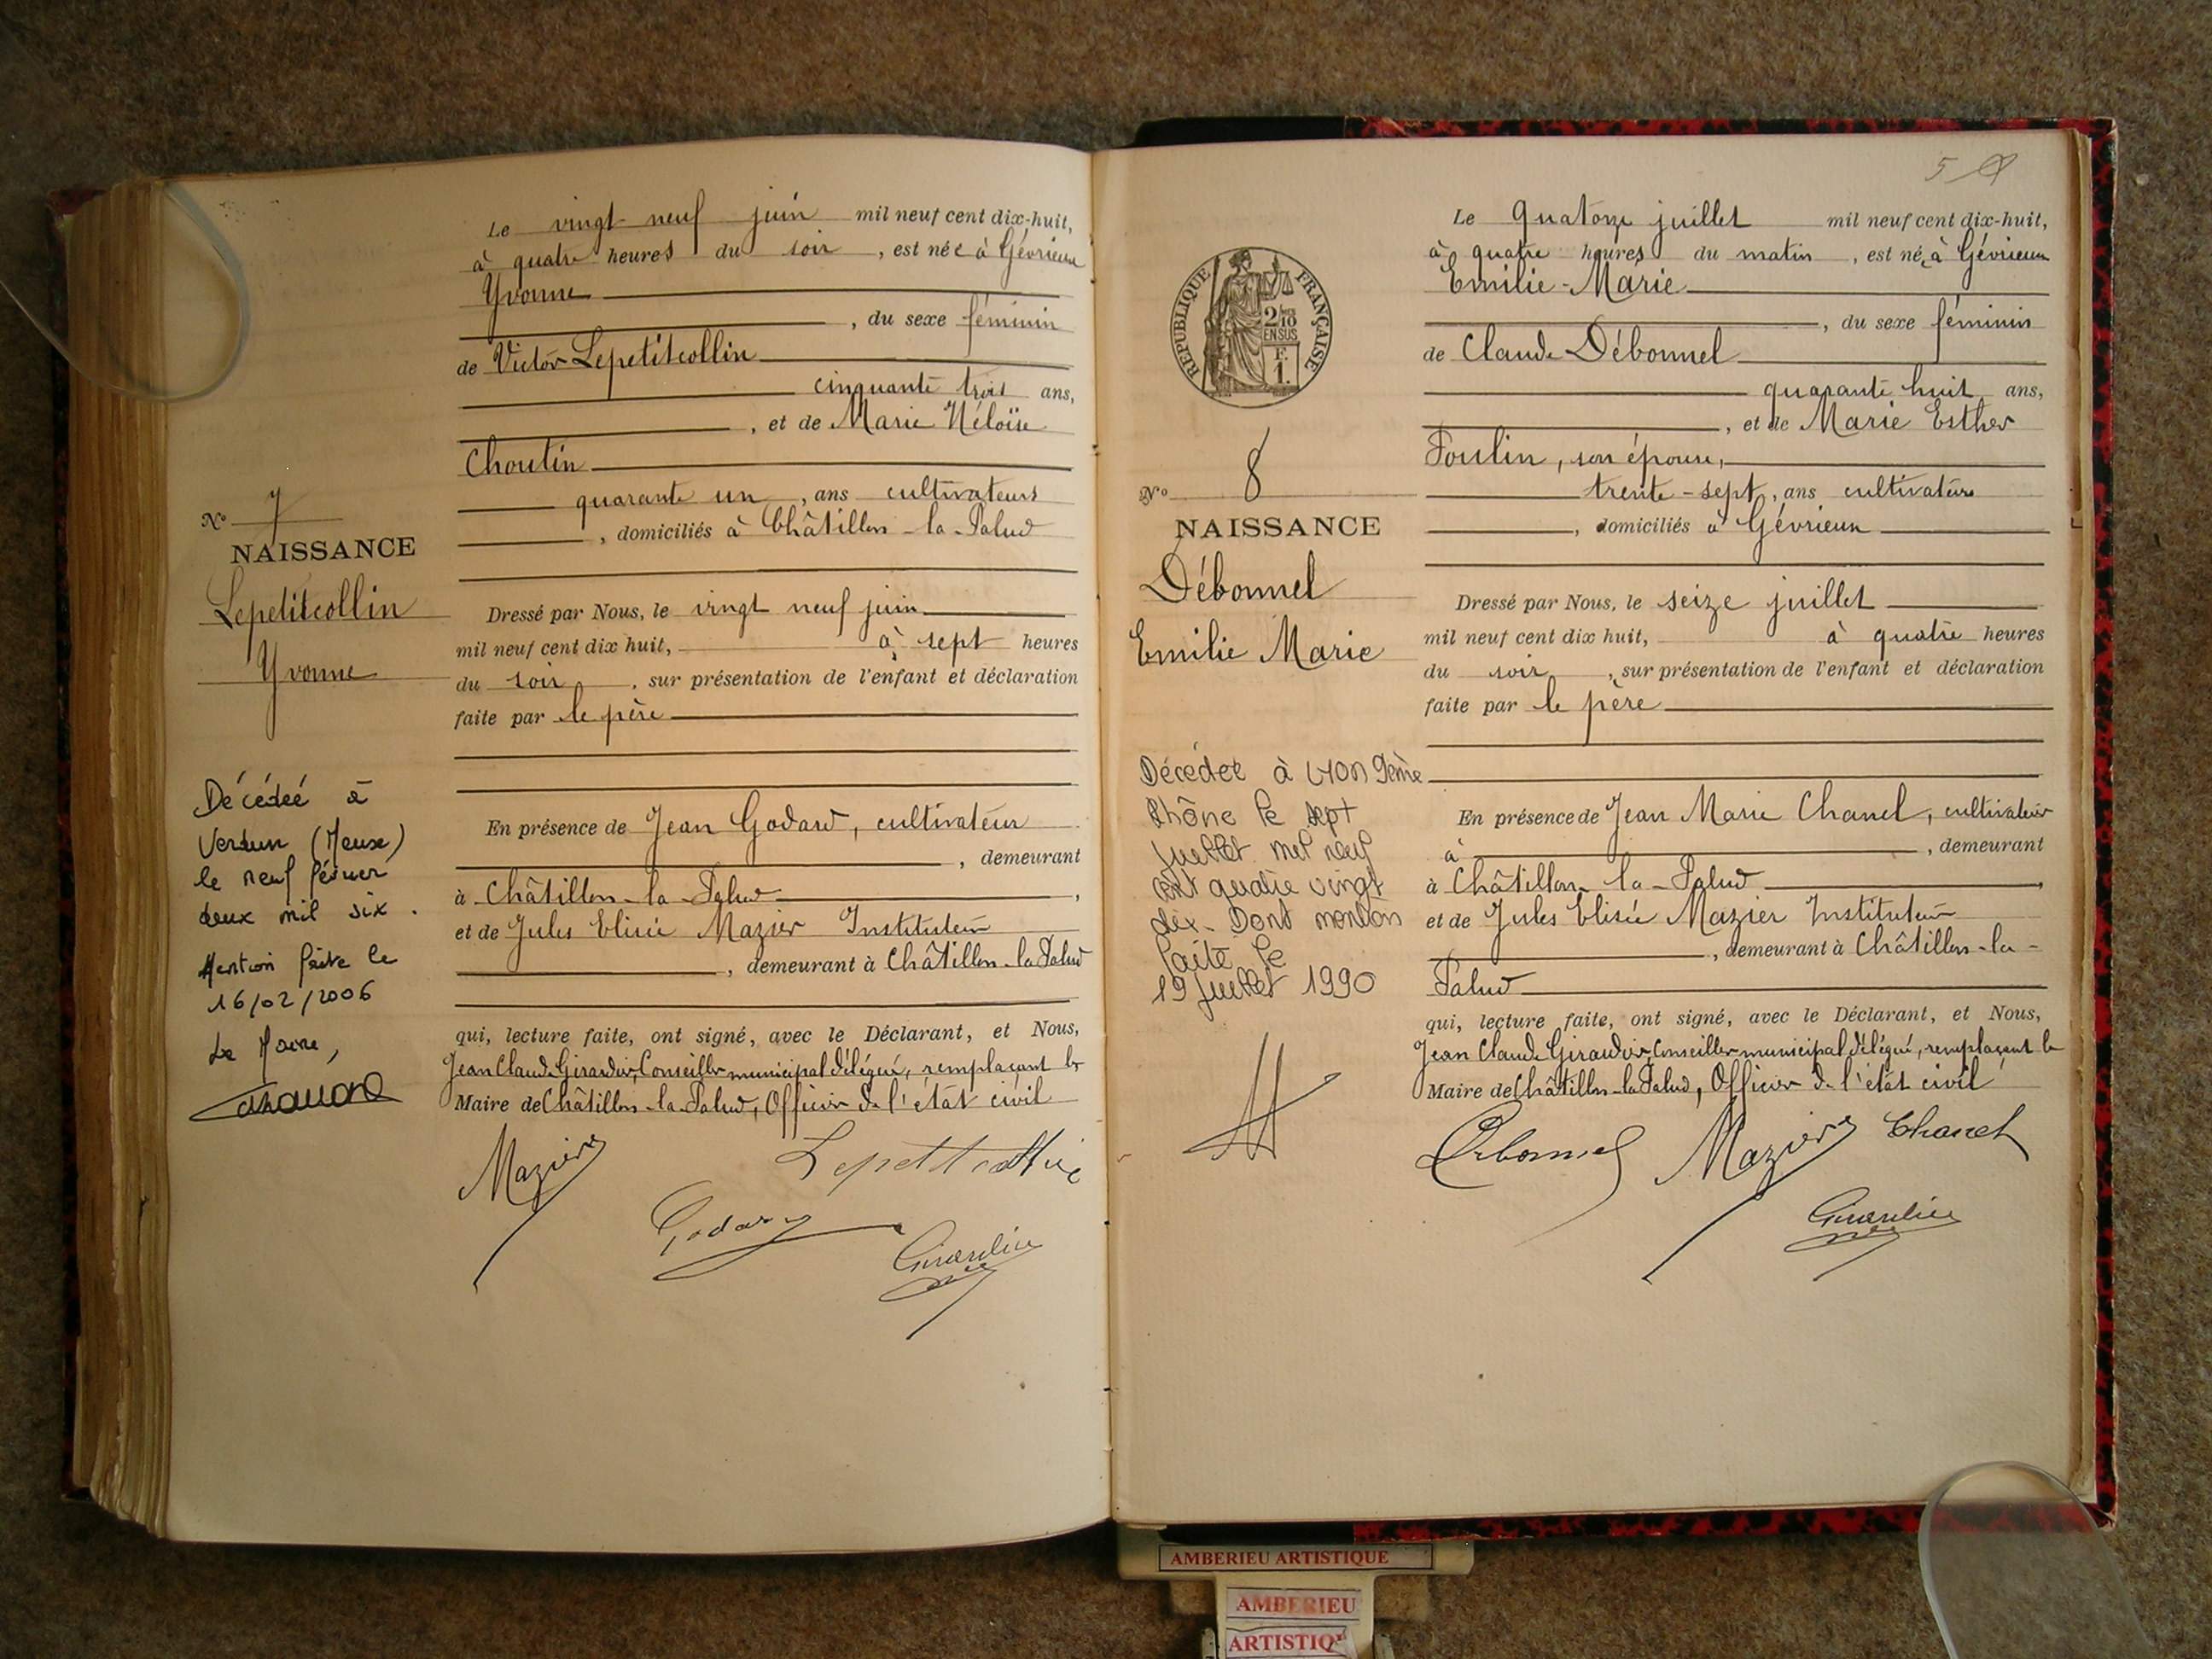 Le vingt neuf juin mil neuf cent dix-huit,
à quatre heures du soir, est née à Gévrieux
Yvonne
, du sexe féminin
de Victor Lepetitcollin
cinquante trois ans,
, et de Marie Héloïse
Choulin
quarante un, ans cultivateurs
, domiciliés à Châtillon-la-Palud
N° 7
NAISSANCE
Lepetitcollin
Yvonne
Dressé par Nous, le vingt neuf juin
mil neuf cent dix huit, à sept heures
du soir, sur présentation de l'enfant et déclaration
faite par le père
Décédée à
Verdun (Meuse)
le neuf février
deux mil six.
Mention faite le
16/02/2006
Le Maire,
En présence de Jean Godard, cultivateur
, demeurant
à Châtillon-la-Palud,
et de Jules Elisée Mazier Instituteur
, demeurant à Châtillon-la-Palud
qui, lecture faite, ont signé, avec le Déclarant, et Nous,
Jean Claude Girardier, Conseiller municipal délégué, remplaçant le
Maire de Châtillon-la-Palud, Officier de l'état civil
Mazier
Lepetitcollin
Godard
Girardier
5
Le quatorze juillet mil neuf cent dix-huit,
à quatre heures du matin, est née à Gévrieux
Emilie-Marie
, du sexe féminin
de Claude Débonnel
quarante huit ans,
, et de Marie Esther
Foulin, son épouse,
trente-sept, ans cultivateurs
, domiciliés à Gévrieux
RÉPUBLIQUE FRANÇAISE
2/10
EN SUS
F.
1.
N° 8
NAISSANCE
Débonnel
Emilie Marie
Dressé par Nous, le seize juillet
mil neuf cent dix huit, à quatre heures
du soir, sur présentation de l'enfant et déclaration
faite par le père
Décédée à Lyon 9ème
Rhône le sept
juillet mil neuf
cent quatre vingt
dix. Dont mention
faite le
19 juillet 1990
En présence de Jean Marie Chanel, cultivateur
à , demeurant
à Châtillon-la-Palud,
et de Jules Elisée Mazier Instituteur
, demeurant à Châtillon-la-
Palud
qui, lecture faite, ont signé, avec le Déclarant, et Nous,
Jean Claude Girardier, Conseiller municipal délégué, remplaçant le
Maire de Châtillon-la-Palud, Officier de l'état civil
Debonnel Mazier Chanel
Girardier
AMBERIEU ARTISTIQUE
AMBERIEU
ARTISTIQ